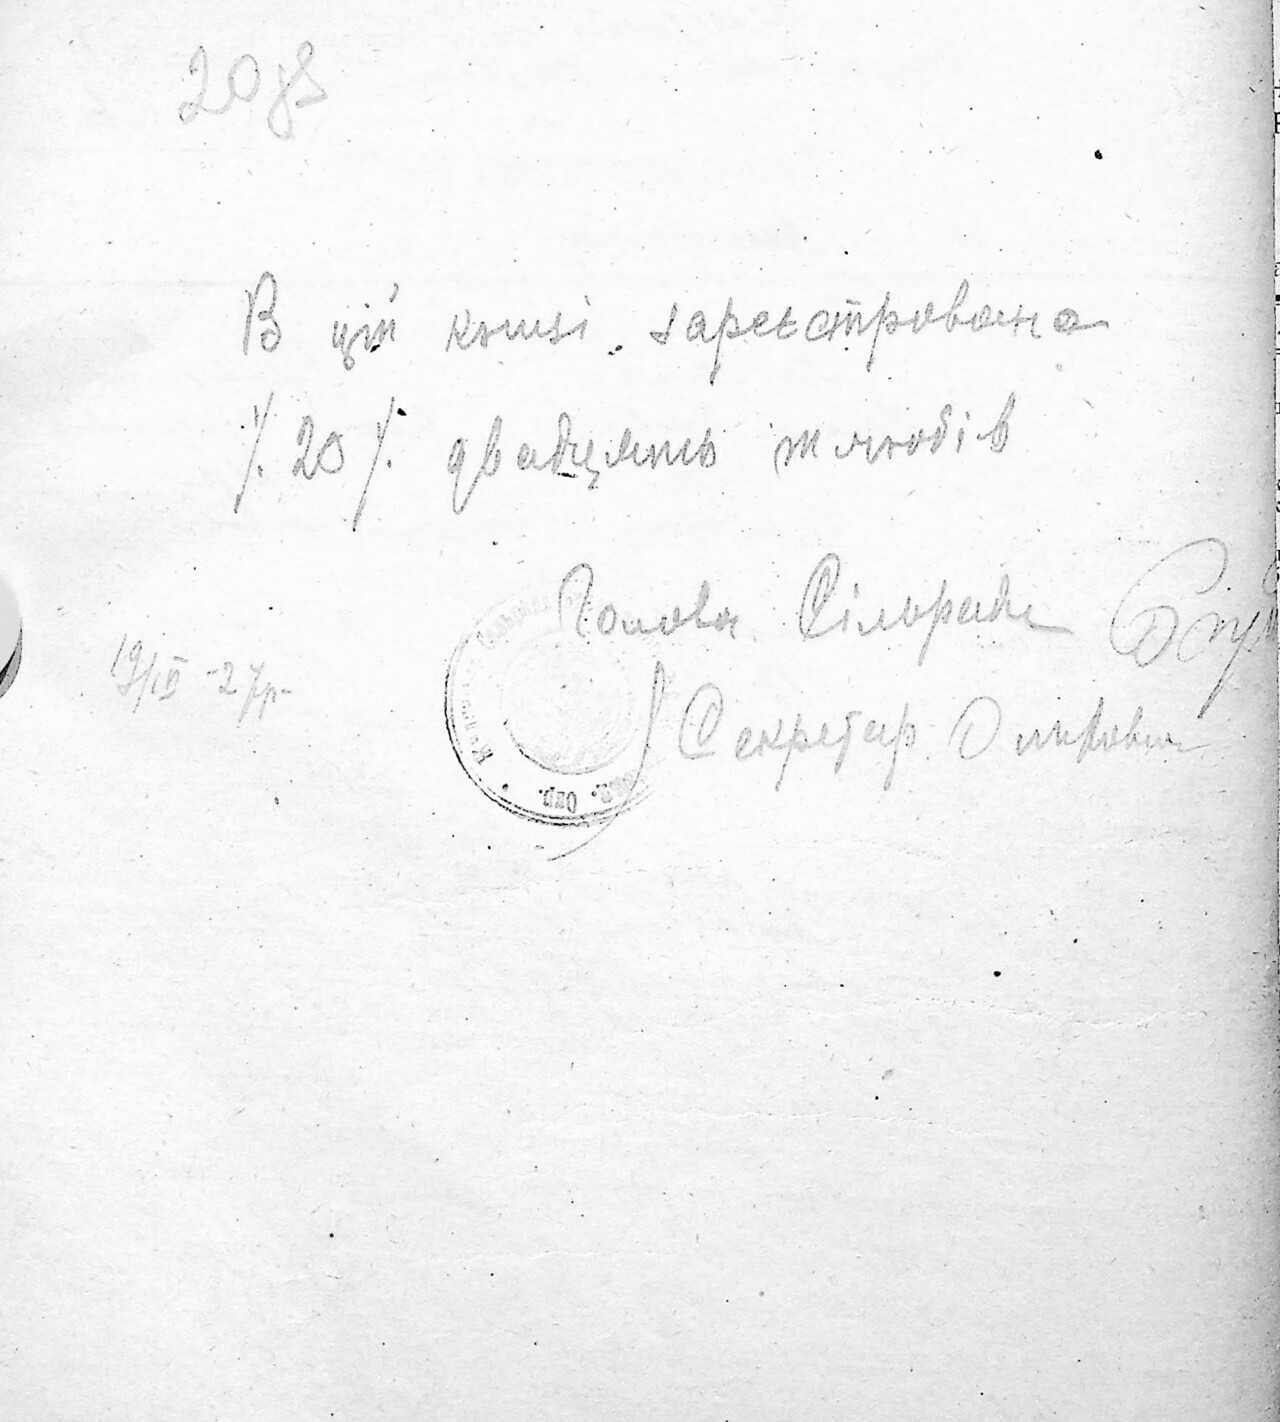 20
В цій книзі зареєстрована
/. 20 /. двадцять шлюбів
Голова Сільради
19/IV -27р-
Секретар
Окр.